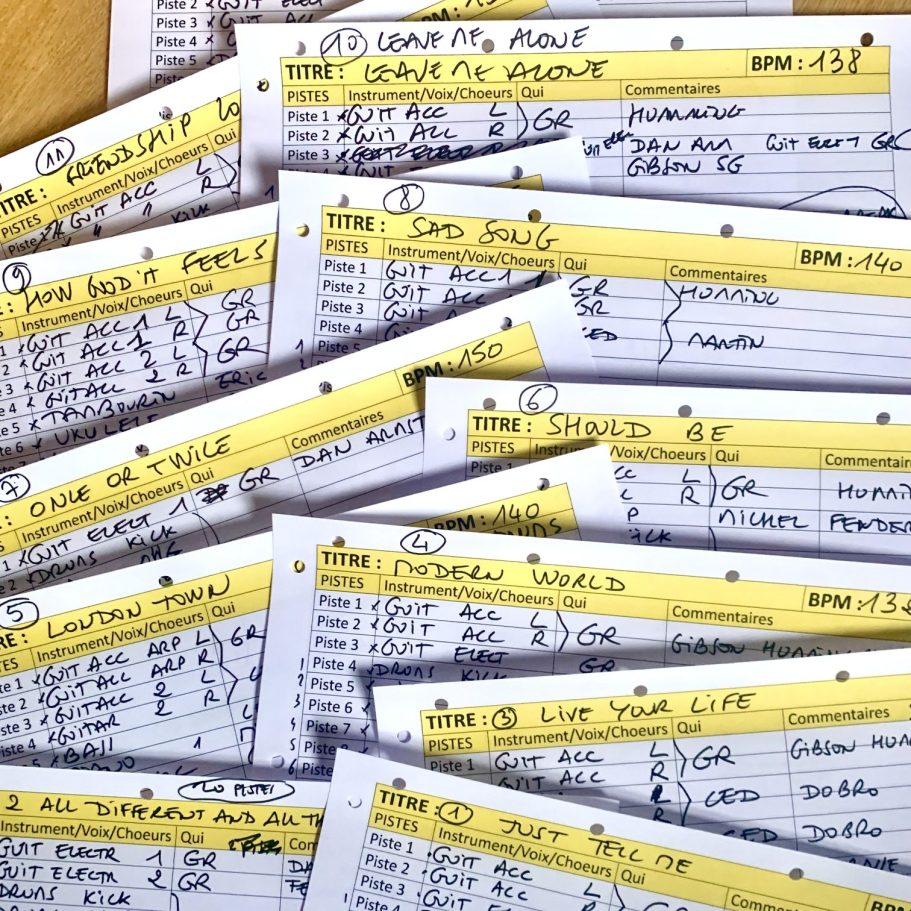 Piste 2 x GUIT ELECT
Piste 3 x GUIT ACC
Piste 4 x
Piste 5
BPM :
10 LEAVE ME ALONE
TITRE : LEAVE ME ALONE BPM : 138
PISTES Instrument/Voix/Choeurs Qui Commentaires
Piste 1 x GUIT ACC L GR HUMMING
Piste 2 x GUIT ACC R
Piste 3 x DAN ARM GUIT ELECT GR
GIBSON SG
11
TITRE : FRIENDSHIP
PISTES Instrument/Voix/Choeurs Qui
Piste GUIT ACC L
" " R
KICK
8
TITRE : SAD SONG BPM : 140
PISTES Instrument/Voix/Choeurs Qui Commentaires
Piste 1 GUIT ACC 1 GR HUMMING
Piste 2 GUIT ACC 1 GR
Piste 3 GUIT
Piste 4 CED MARTIN
Piste 5
9
HOW GOOD IT FEELS
Instrument/Voix/Choeurs Qui
1 x GUIT ACC 1 L GR
2 x GUIT ACC 1 R GR
3 x GUIT ACC 2 L GR
4 x GUIT ACC 2 R
5 x TAMBOURIN ERIC
6 x UKULELE
7
BPM : 150
: ONCE OR TWICE
Instrument/Voix/Choeurs Qui Commentaires
1 x GUIT ELECT 1 GR DAN ARMST
2 x DRUMS KICK
6
TITRE : SHOULD BE
PISTES Instrument/Voix/Choeurs Qui Commentaires
Piste 1 ACC L GR HUMMI
R
MICHEL FENDER
KICK
BPM : 140
4
TITRE : MODERN WORLD BPM : 138
PISTES Instrument/Voix/Choeurs Qui Commentaires
Piste 1 x GUIT ACC L GR GIBSON HUMMING
Piste 2 x GUIT ACC R
Piste 3 x GUIT ELECT GR
Piste 4 x DRUMS KICK
Piste 5
Piste 6
Piste 7
Piste 8
Piste
5
LONDON TOWN
Instrument/Voix/Choeurs Qui
Piste 1 x GUIT ACC ARP L GR
Piste 2 x GUIT ACC ARP R
Piste 3 x GUIT ACC 2 L
Piste 4 x GUITAR 2 R
x BASS 1
TITRE : 3 LIVE YOUR LIFE
PISTES Instrument/Voix/Choeurs Qui Commentaires
Piste 1 GUIT ACC L GR GIBSON HUM
GUIT ACC R
CED DOBRO
CED DOBRO
20 PISTES
2 ALL DIFFERENT AND ALL TH
Instrument/Voix/Choeurs Qui Com
GUIT ELECTR 1 GR DA
GUIT ELECTR 2 GR FE
DRUMS KICK
TITRE : 1 JUST TELL ME
PISTES Instrument/Voix/Choeurs Qui Comm BPM
Piste 1 GUIT ACC L
Piste 2 GUIT ACC R
Piste 3 GUIT
Piste 4